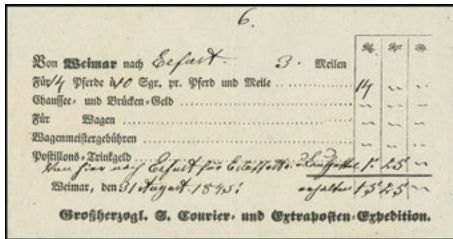 6.
Rg. Sgr. Pf.
Von Weimar nach Erfurt. 3. Meilen
Für 14 Pferde à 10 Sgr. pr. Pferd und Meile 14 " "
Chaussee- und Brücken-Geld " " "
Für Wagen " " "
Wagenmeistergebühren " " "
Postillons-Trinkgeld
von hier nach Erfurt für Estaffette 1. 25 "
Weimar, den 31 August 1845. erhalten 15 25 "
Großherzogl. S. Courier- und Extraposten-Expedition.